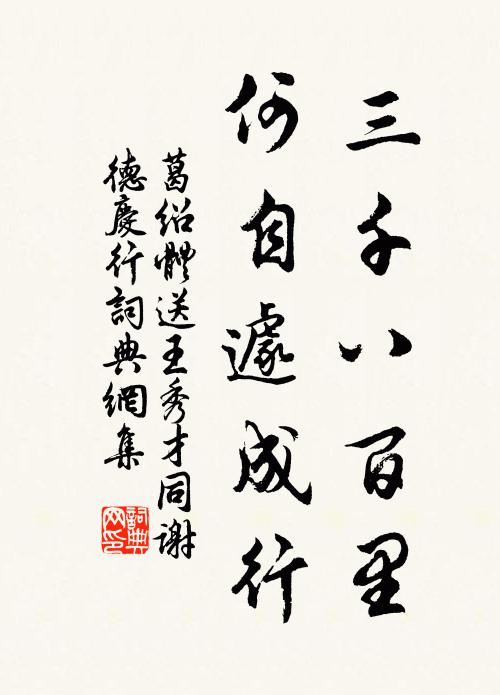 三千八百里
何自遽成行
葛紹體送王秀才同謝
德慶行詞典網集
詞典网印